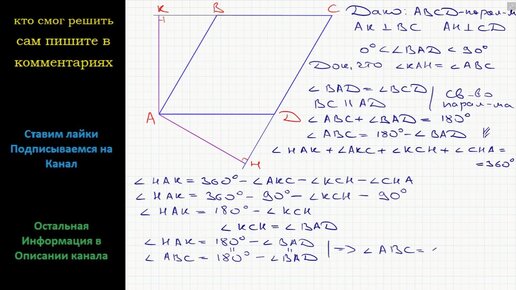 кто смог решить
сам пишите в
комментариях
Ставим лайки
Подписываемся на
Канал
Остальная
Информация в
Описании канала
K
B
C
A
D
H
Дано: ABCD-парал-м
AK ⊥ BC AH ⊥ CD
0° < ∠BAD < 90°
Док, что ∠KAH = ∠ABC
∠BAD = ∠BCD
BC || AD
св-во
парал-ма
∠ABC + ∠BAD = 180°
∠ABC = 180° - ∠BAD
∠HAK + ∠AKC + ∠KCH + ∠CHA =
= 360°
∠HAK = 360° - ∠AKC - ∠KCH - ∠CHA
∠HAK = 360° - 90° - ∠KCH - 90°
∠HAK = 180° - ∠KCH
∠KCH = ∠BAD
∠HAK = 180° - ∠BAD
∠ABC = 180° - ∠BAD
=> ∠ABC =